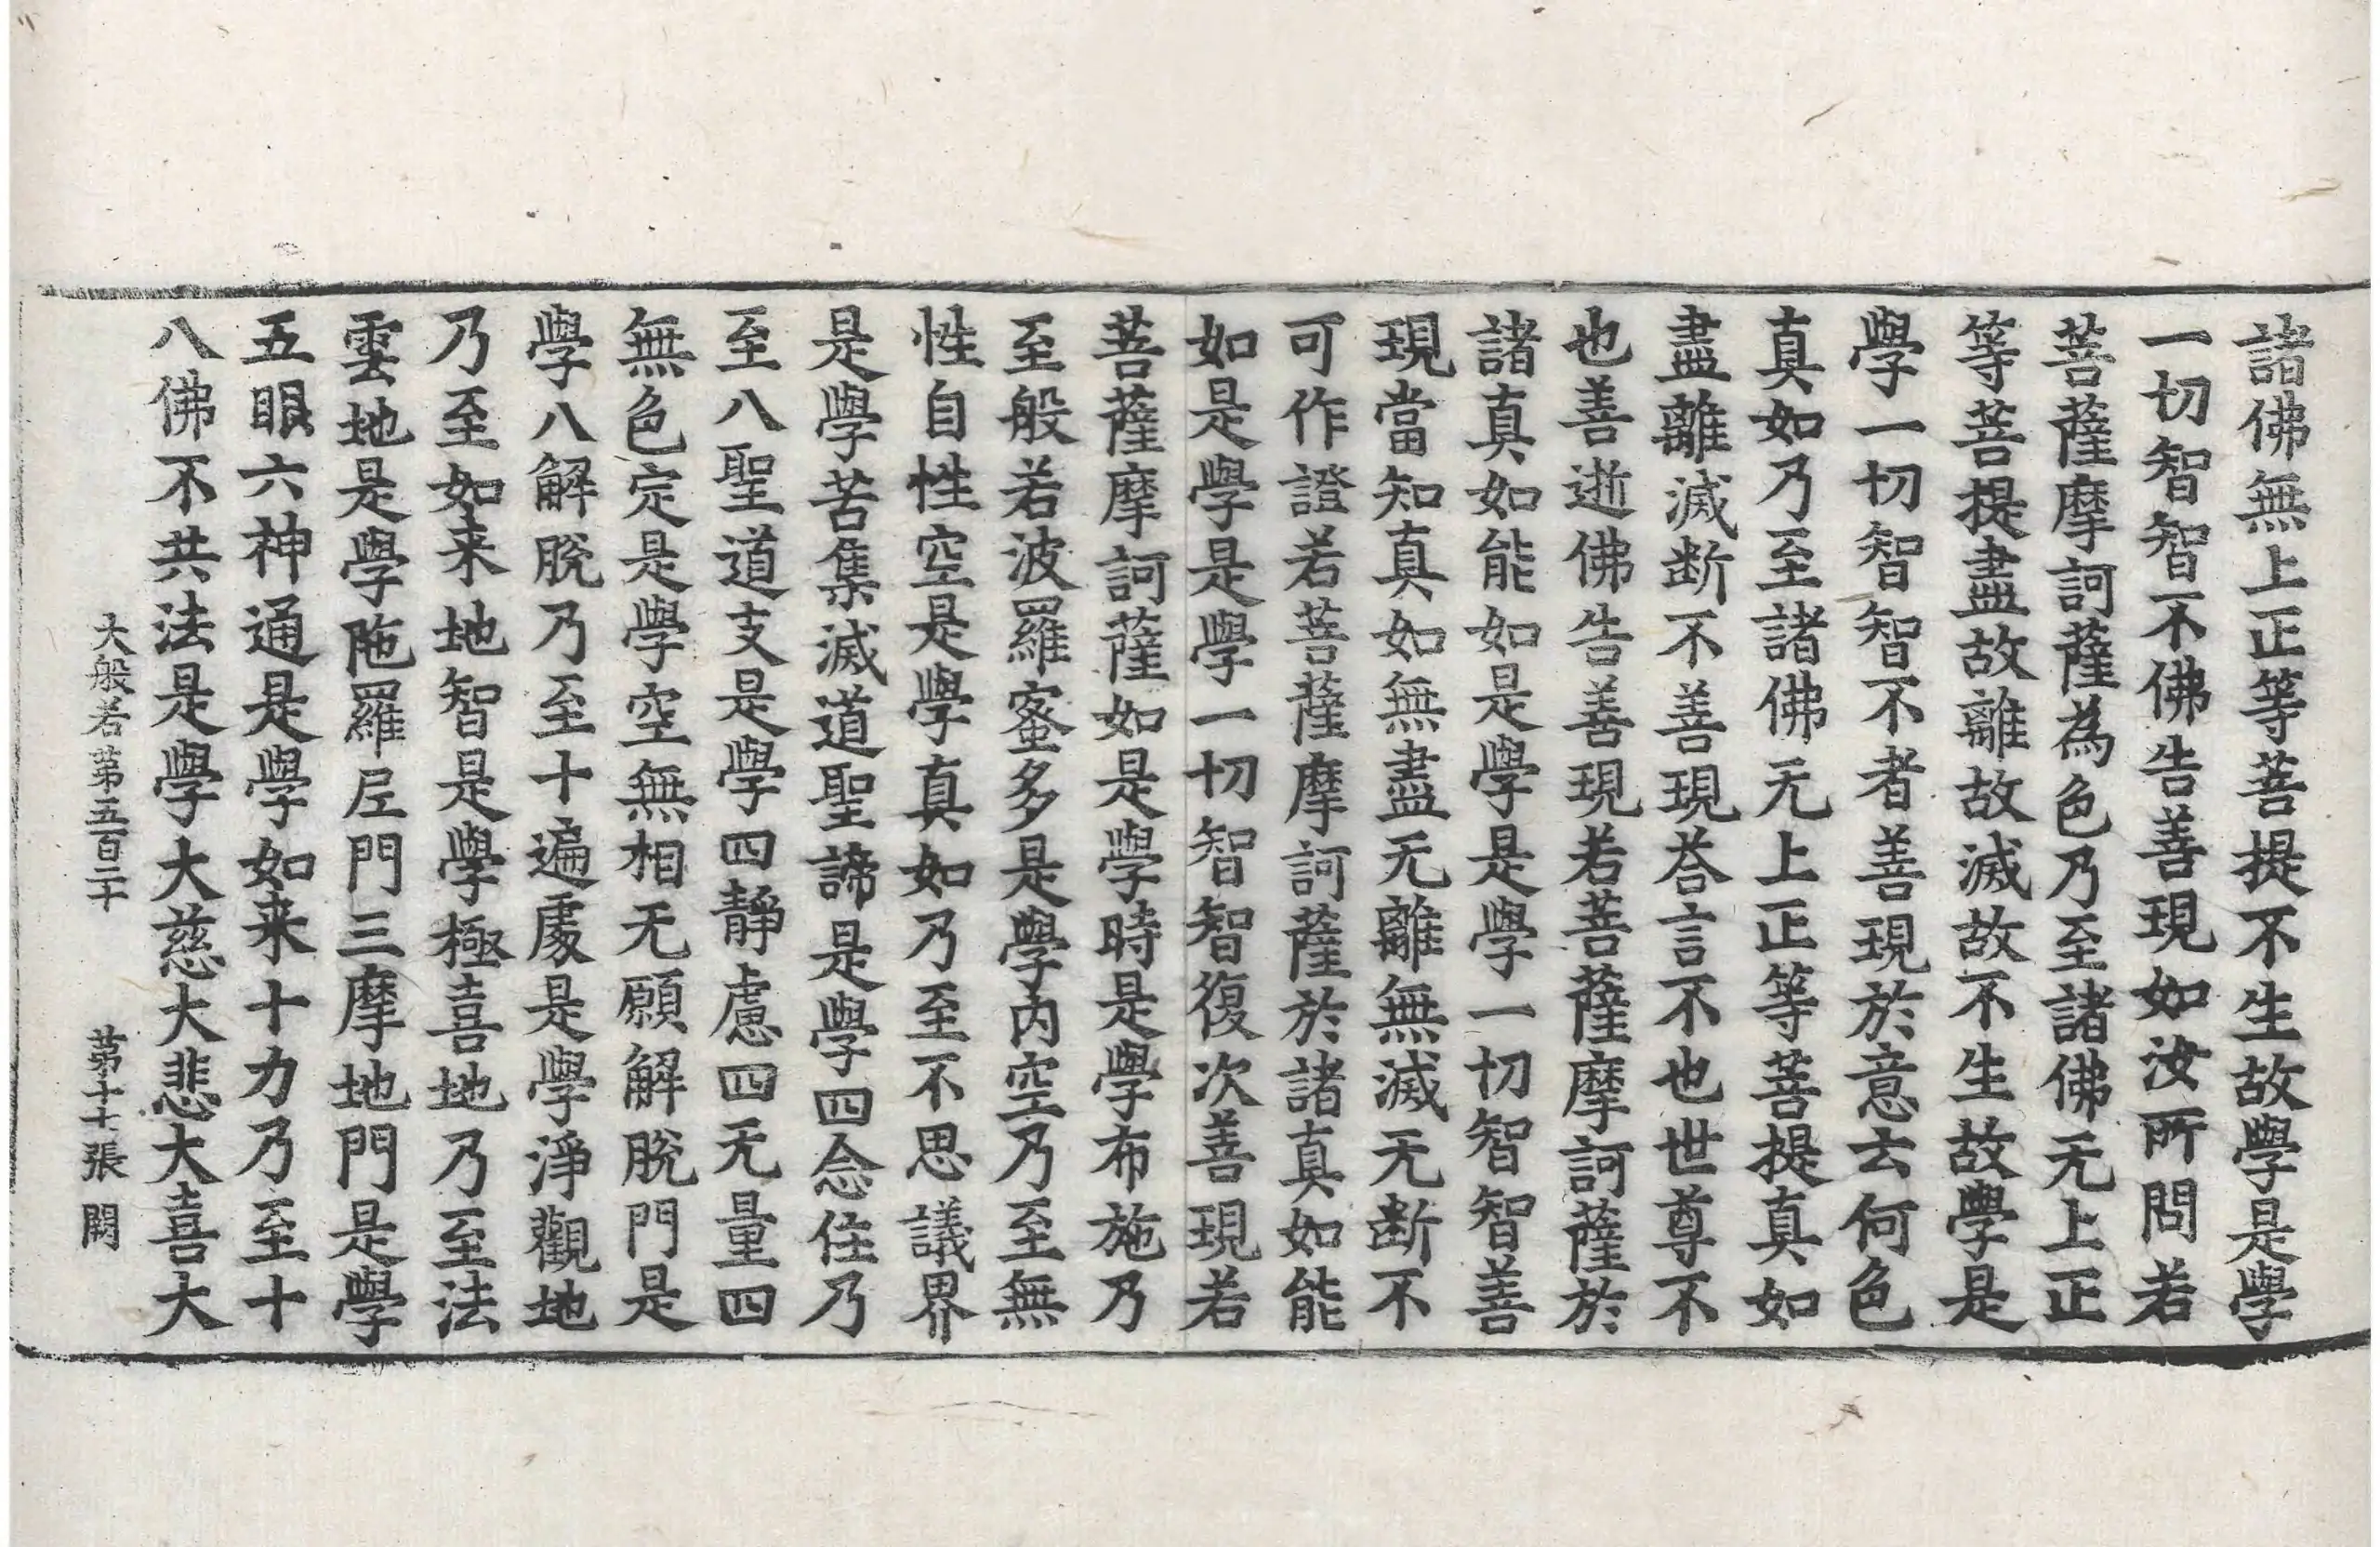 諸佛無上正等菩提不生故學是學
一切智智不佛告善現如汝所問若
菩薩摩訶薩為色乃至諸佛无上正
等菩提盡故離故滅故不生故學是
學一切智智不者善現於意云何色
真如乃至諸佛无上正等菩提真如
盡離滅断不善現荅言不也世尊不
也善逝佛告善現若菩薩摩訶薩於
諸真如能如是學是學一切智智善
現當知真如無盡无離無滅无断不
可作證若菩薩摩訶薩於諸真如能
如是學是學一切智智復次善現若
菩薩摩訶薩如是學時是學布施乃
至般若波羅蜜多是學内空乃至無
性自性空是學真如乃至不思議界
是學苦集滅道聖諦是學四念住乃
至八聖道支是學四靜慮四无量四
無色定是學空無相无願解脫門是
學八解脫乃至十遍處是學淨觀地
乃至如来地智是學極喜地乃至法
雲地是學陁羅尼門三摩地門是學
五眼六神通是學如来十力乃至十
八佛不共法是學大慈大悲大喜大
大般若第五百二十 第十七張 闕